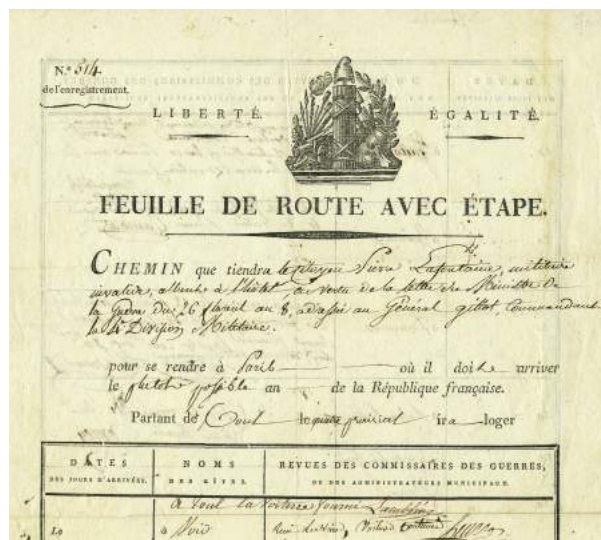 N.º 614
de l'enregistrement.
LIBERTÉ. ÉGALITÉ.
FEUILLE DE ROUTE AVEC ÉTAPE.
CHEMIN que tiendra le citoyen Pierre Lafontaine, militaire
invalide, à l'hôtel, en vertu de la lettre du Ministre de
la Guerre du 26 an 8, adressée au Général gilot, Commandant
la 4e Division Militaire.
pour se rendre à Paris où il doit arriver
le plutôt possible an de la République française.
Partant de Toul le prairial ira loger
DATES NOMS REVUES DES COMMISSAIRES DES GUERRES,
DES JOURS D'ARRIVÉES. DES GÎTES. OU DES ADMINISTRATEURS MUNICIPAUX.
à Toul la voiture fournie
Le à Void